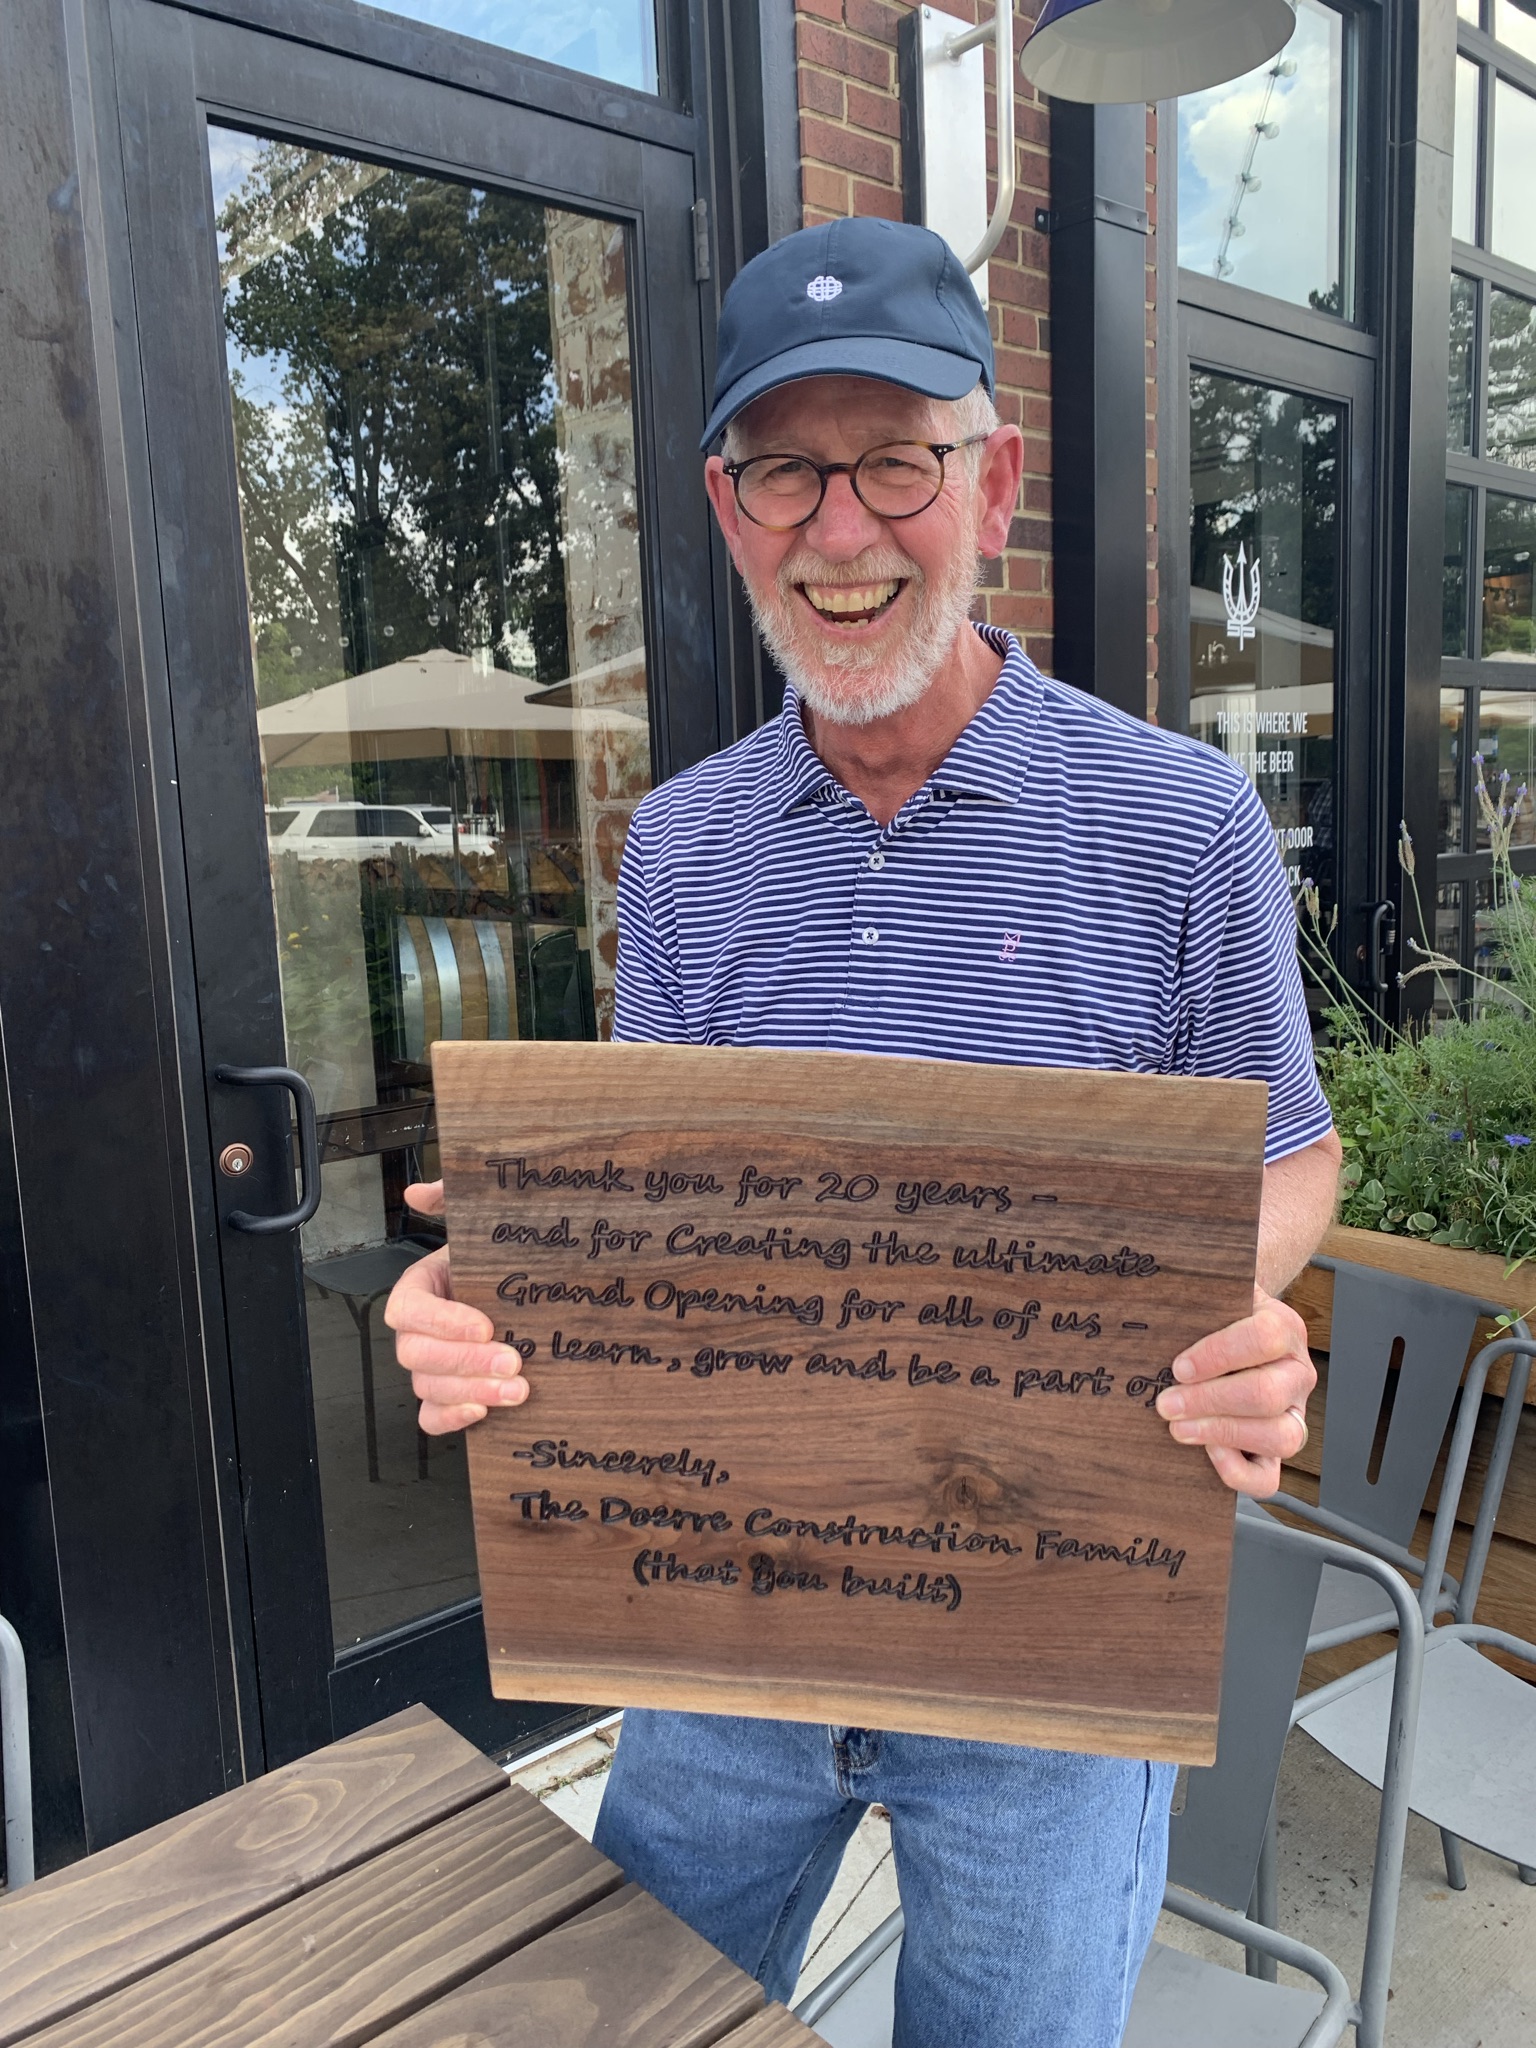 Thank you for 20 years –
and for Creating the ultimate
Grand Opening for all of us –
to learn, grow and be a part of
-Sincerely,
The Doerre Construction Family
(that you built)
SP
THIS IS WHERE WE
THE BEER